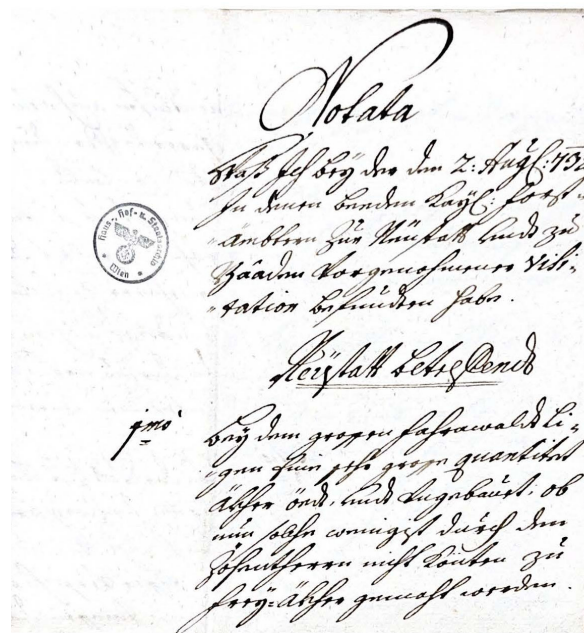 Notata
Waß Ich bey der den 2: Aug: 732
In denen beeden Kayl: Forst-
-ämbtern zur Neüstatt undt zu
Baaden Vorgenohmener Visi-
-tation befundten habe.
Haus-, Hof- u. Staatsarchiv
Wien
Neüstatt betreffendt
1mo
Bey dem grossen Fahrawaldt li-
-gen Eine sehr grosse quantitet
Äkher öedt, undt Ungebauet; ob
nun solche wenigst durch den
Zehentherrn nicht könten zu
frey-Äkher gemacht werden.